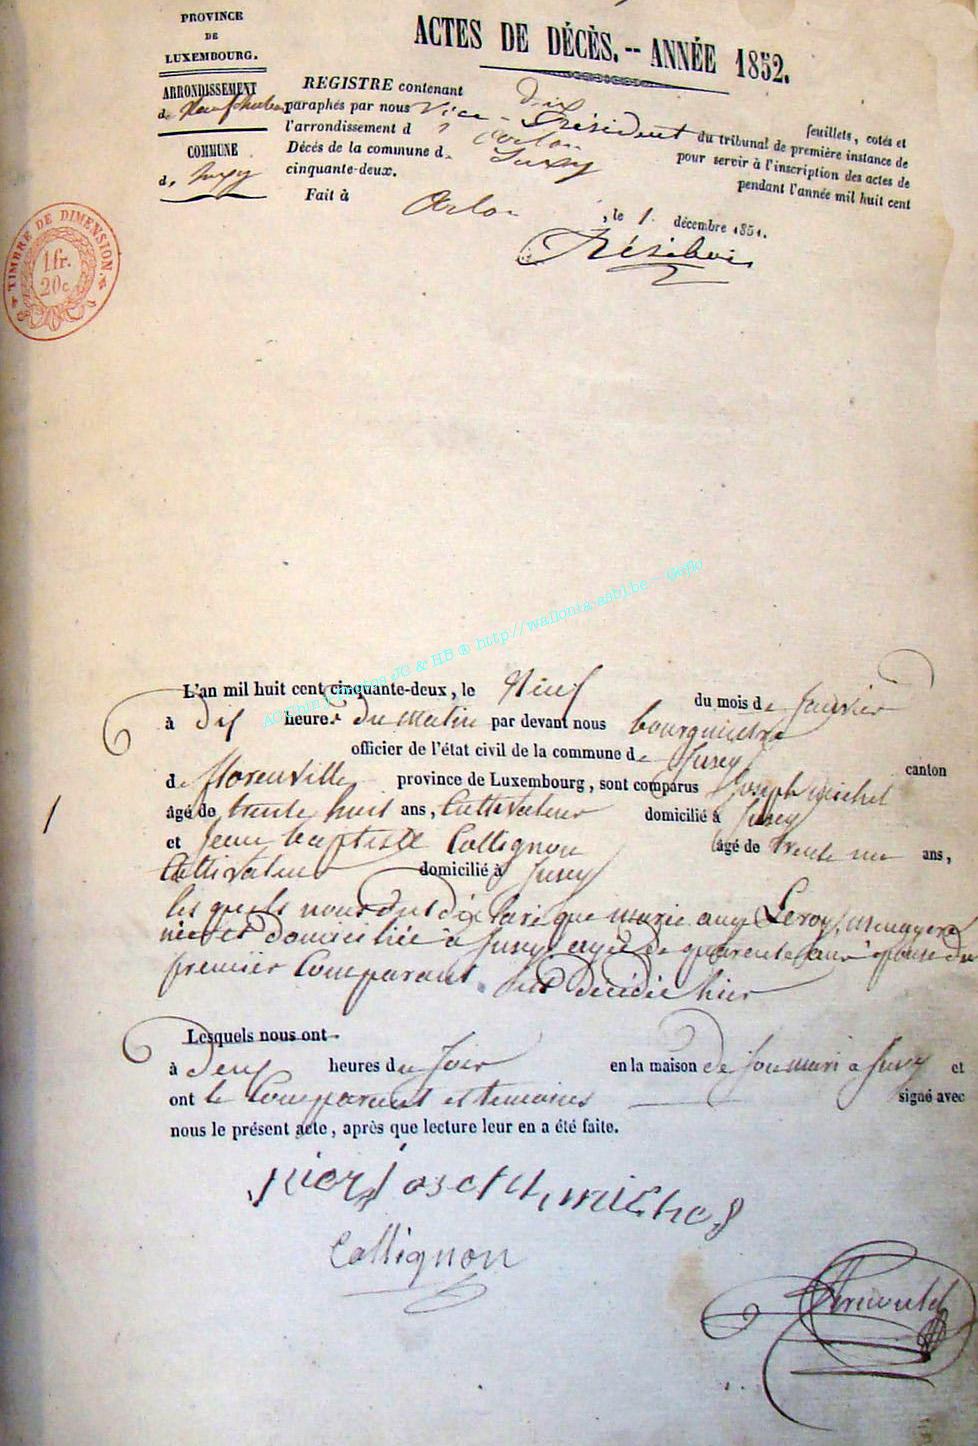 PROVINCE
DE
LUXEMBOURG.
ARRONDISSEMENT
de
COMMUNE
de Jusey
TIMBRE DE DIMENSION
1 fr.
20 c.
ACTES DE DÉCÈS. -- ANNÉE 1852.
REGISTRE contenant dix feuillets, cotés et
paraphés par nous Vice-Président du tribunal de première instance de
l'arrondissement d' Arlon pour servir à l'inscription des actes de
Décés de la commune de Jusey pendant l'année mil huit cent
cinquante-deux.
Fait à Arlon, le 1 décembre 1851.
1
L'an mil huit cent cinquante-deux, le Neuf du mois de Janvier
à heures du matin par devant nous
officier de l'état civil de la commune de Jusey canton
de florenville province de Luxembourg, sont comparus Joseph michel
âgé de trente huit ans, Cultivateur domicilié à Jusey
et Jean baptiste Collignon âgé de trente un ans,
Cultivateur domicilié à Jusey
les quels nous ont déclaré que marie Leroy, menagere
née et domiciliée a Jusey agee de quarente ans épouse du
premier Comparant est décédée hier
Lesquels nous ont
à heures du soir en la maison de son mari a Jusey et
ont le Comparant et temoins signé avec
nous le présent acte, après que lecture leur en a été faite.
joseph michel
Collignon
photos JG & HB ® http://wallonia-asbl.be - Geflo